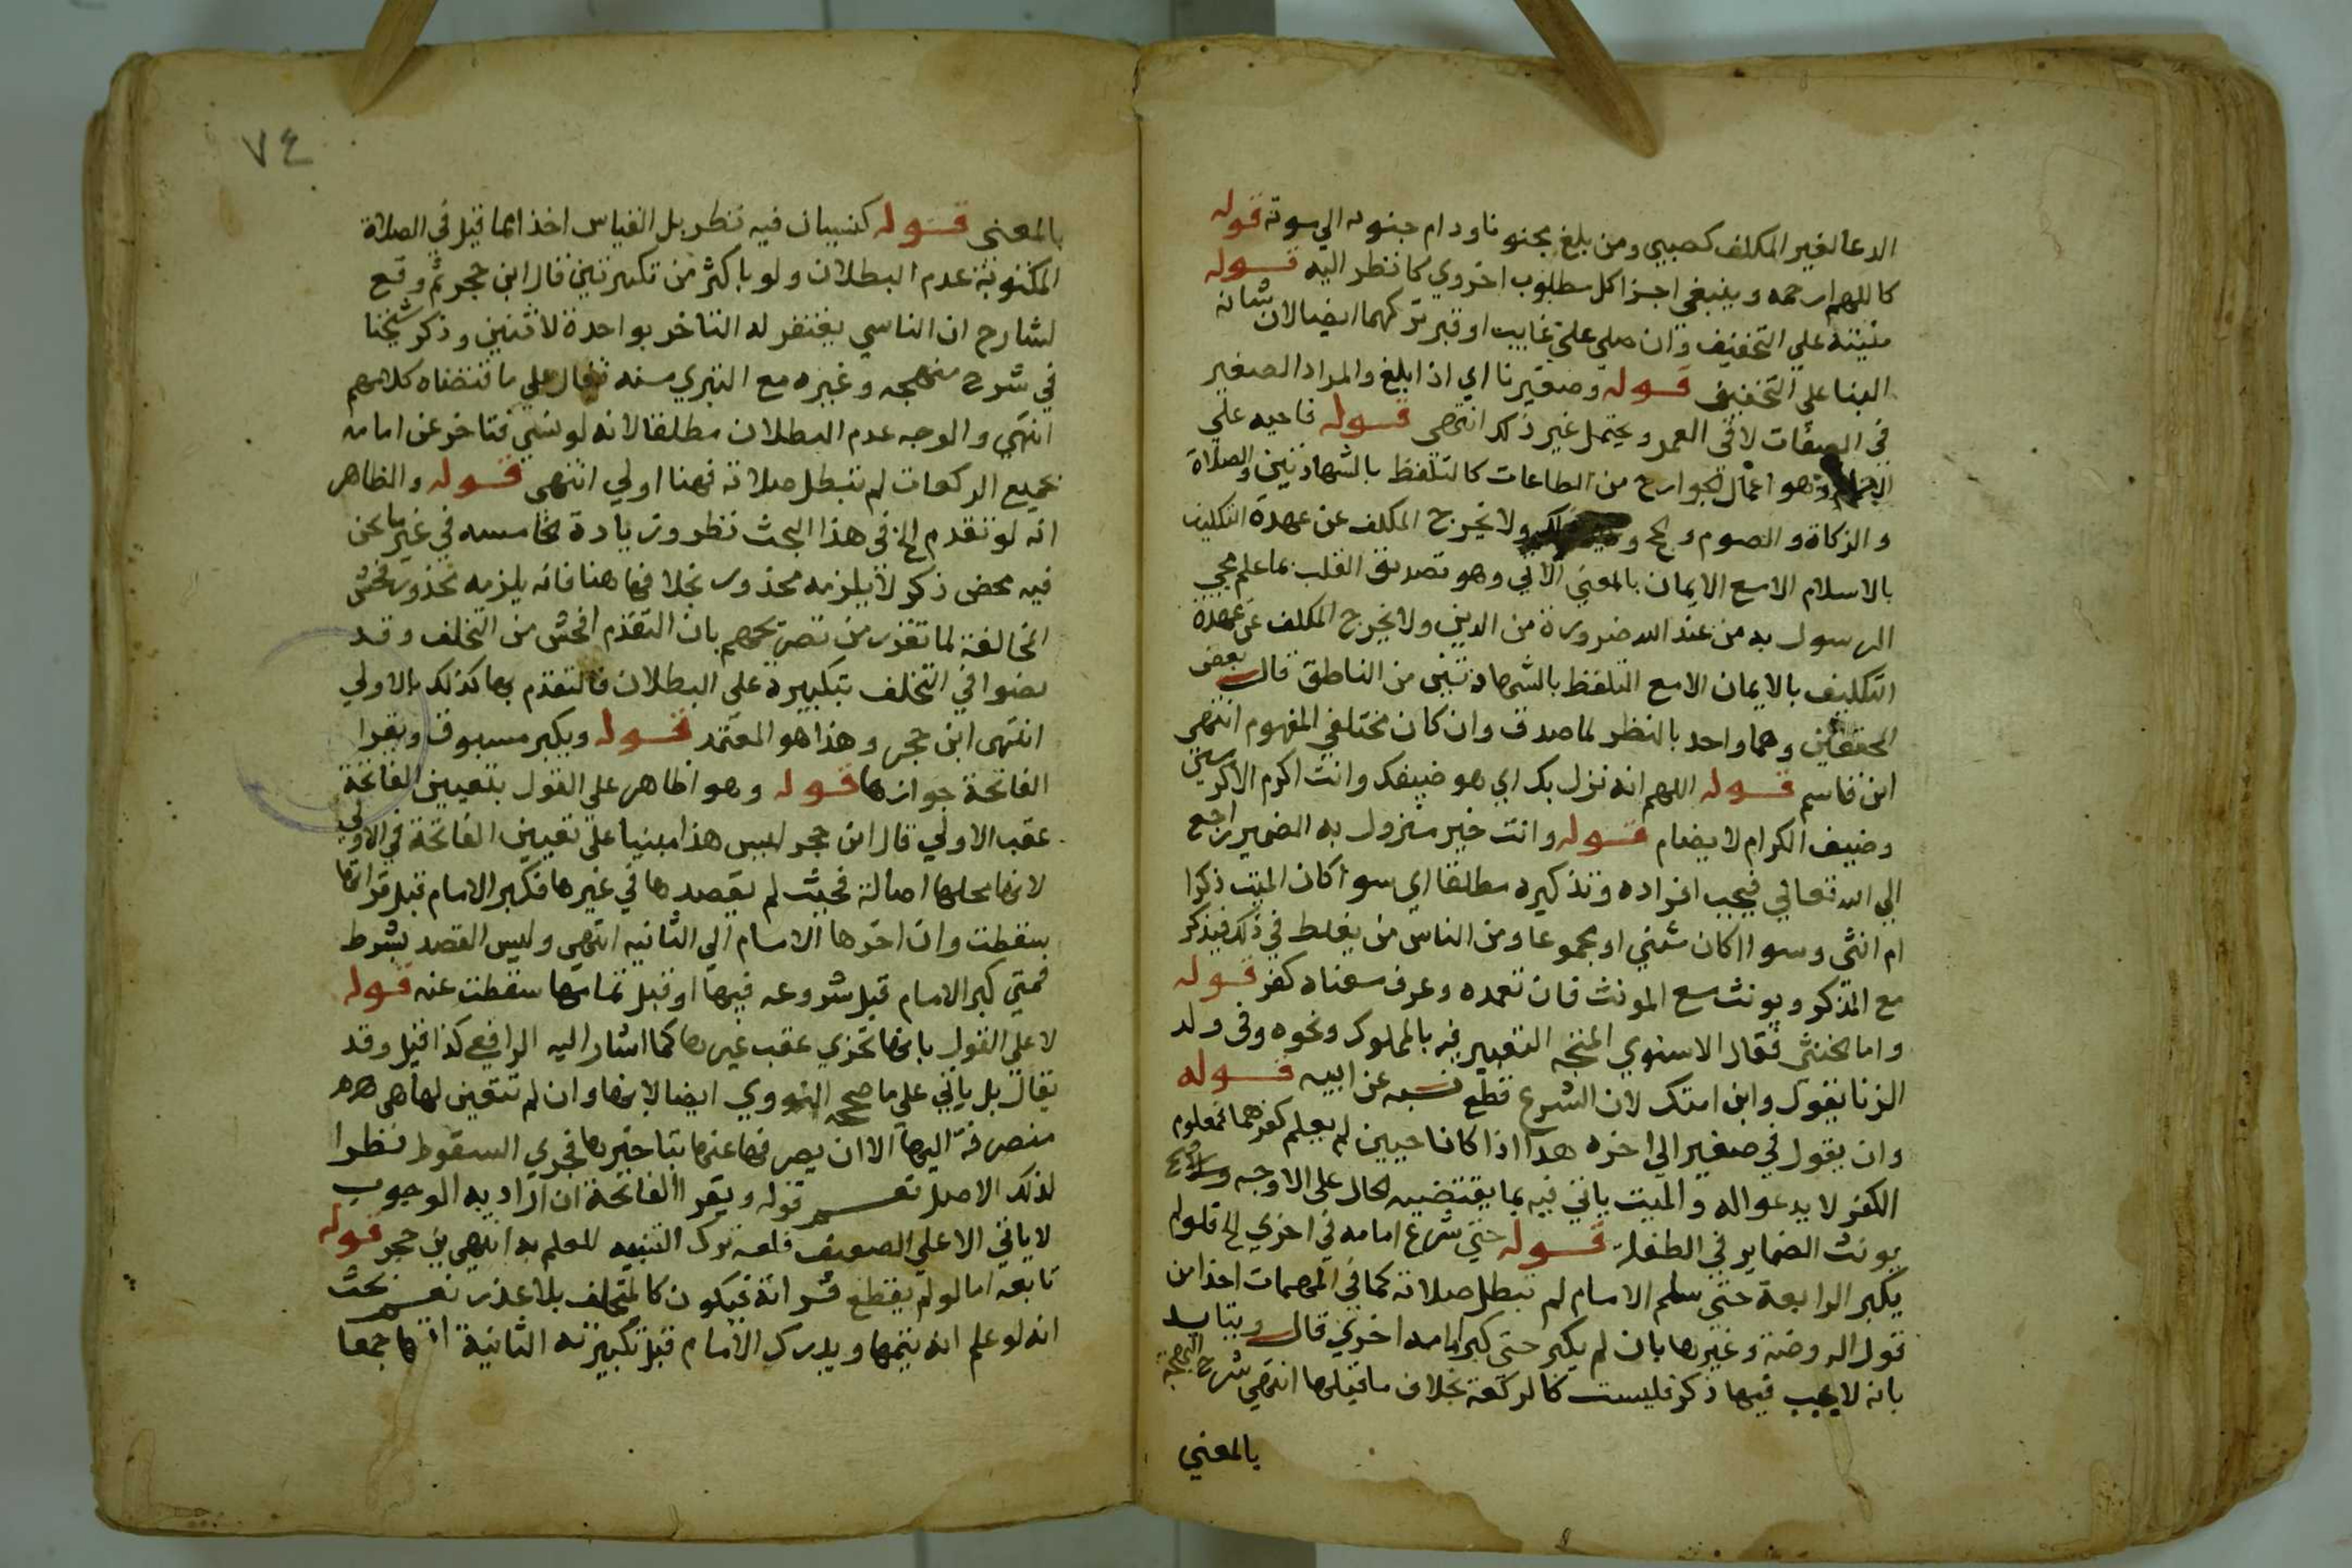 الدعا لغير المكلف كصبي ومن بلغ مجنونا ودام جنونه الي موته قوله
كاللهم ارحمه وينبغي اجزا كل مطلوب اخروي كانظر اليه قوله
مبنية علي التخفيف وان صلي علي غايب او قبر تركهما ايضا لان شانه
البنا علي التخفيف قوله وصغيرنا اي اذا بلغ والمراد الصغير
في الصفات لا في العمر ويحتمل غير ذلك انتهي قوله فاحيه علي
وهو اعمال الجوارح من الطاعات كالتلفظ بالشهادتين والصلاة
والزكاة والصوم والحج ولا يخرج المكلف عن عهدة التكليف
بالاسلام الا مع الايمان بالمعني الاتي وهو تصديق القلب بما علم مجي
الرسول به من عند الله ضرورة من الدين ولا يخرج المكلف عن عهدة
التكليف بالايمان الا مع التلفظ بالشهادتين من الناطق قال بعض
المحققين وهما واحد بالنظر لما صدق وان كان مختلفي المفهوم انتهي
ابن قاسم قوله اللهم انه نزل بك اي هو ضيفك وانت اكرم الاكرمين
وضيف الكرام لا يضام قوله وانت خير منزول به الضمير راجع
الي الله تعالي فيجب افراده وتذكيره مطلقا اي سوا كان الميت ذكرا
ام انثي وسوا اكان مثني او مجموعا ومن الناس من يغلط في ذلك فيذكر
مع المذكر ويونث مع المونث فان تعمده وعرف معناه كفر قوله
واما الخنثي فقال الاسنوي المتجه التعبير فيه بالمملوك ونحوه وفي ولد
الزنا يقول وابن امتك لان الشرع قطع نسبه عن ابيه قوله
وان يقول في صغير الي اخره هذا اذا كانا حيين لم يعلم كفرهما فمعلوم
الكفر لا يدعو اله والميت ياتي فيه بما يقتضيه الحال علي الاوجه
يونث الضماير في الطفلة قوله حتي شرع امامه في اخري الخ فلو لم
يكبر الرابعة حتي سلم الامام لم تبطل صلاته كما في المهمات اخذا من
قول الروضة وغيرها بان لم يكبر حتي كبر امامه اخري قال ويتايد
بانه لا يجب فيها ذكر فليست كالركعة بخلاف ما قبلها انتهي شرح البهجة
بالمعني
٧٤
بالمعني قوله كنسيان فيه نظر بل القياس اخذا مما قيل في الصلاة
المكتوبة عدم البطلان ولو باكثر من تكبيرتين قال ابن حجر ثم وقع
لشارح ان الناسي يغتفر له التاخر بواحدة لا ثنتين وذكر شيخنا
في شرح منهجه وغيره مع التبري منه فقال علي ما اقتضاه كلامهم
انتهي والوجه عدم البطلان مطلقا لانه لو نسي فتاخر عن امامه
بجميع الركعات لم تبطل صلاته فهنا اولي انتهي قوله والظاهر
انه لو تقدم الخ في هذا البحث نظر وزيادة خامسه في غير ما نحن
فيه محض ذكر لا يلزمه محذور بخلافها هنا فانه يلزمه محذور فحش
المخالفة لما تقرر من تصريحهم بان التقدم افحش من التخلف وقد
نصوا في التخلف بتكبيرة علي البطلان فالتقدم بها كذلك بالاولي
انتهي ابن حجر وهذا هو المعتمد قوله ويكبر مسبوق ويقرا
الفاتحة جوازها قوله وهو اظاهر علي القول بتعيين الفاتحة
عقب الاولي قال ابن حجر ليس هذا مبنيا علي تعيين الفاتحة في الاولي
لانها محلها اصالة فحيث لم يقصدها في غيرها فكبر الامام قبل قراتها
سقطت وان اخرها الامام الي الثانيه انتهي وليس القصد بشرط
فمتي كبر الامام قبل شروعه فيها او قبل تمامها سقطت عنه قوله
لا علي القول بانها تجزي عقب غيرها كما اشار اليه الرافعي كذا قيل وقد
يقال بل ياتي علي ما صححه النووي ايضا لانها وان لم تتعين لها هي
منصرفة اليها الا ان يصرفها عنها بتاخيرها فجري السقوط نظرا
لذلك الاصل نعم قوله ويقرا الفاتحة ان اراد به الوجوب
لا ياتي الا علي الضعيف فلعه ترك التنبيه للعلم به انتهي بن حجر قوله
تابعه اما لو لم يقطع قراته فيكون كالمتخلف بلا عذر نعم بحث
انه لو علم انه يتمها ويدرك الامام قبل تكبيرته الثانية